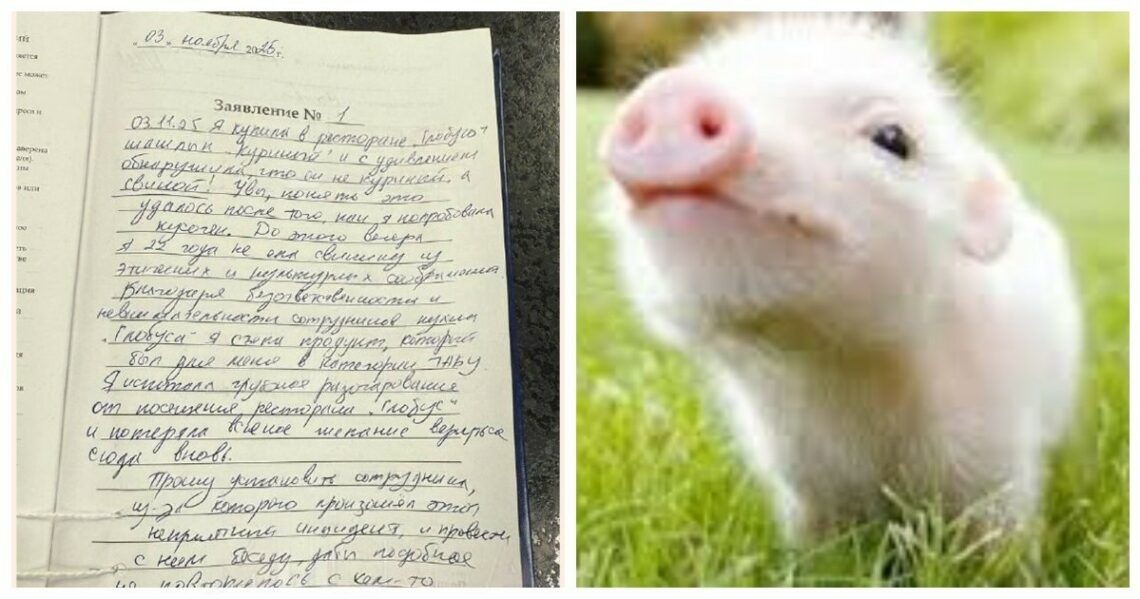 "03" ноября 2025 г.
Заявление № 1
03.11.25 Я купила в ресторане "Глобус"
шашлык "куриный" и с удивлением
обнаружила, что он не куриный, а
свиной! Увы, понять это
удалось после того, как я попробовала
кусочек. До этого вечера
я 24 года не ела свинину из
этических и культурных соображений
Благодаря безответственности и
невнимательности сотрудников кухни
"Глобуса" я съела продукт, который
был для меня в категории ТАБУ
Я испытала грубокое разочарование
от посещения ресторана "Глобус"
и потеряла всякое желание вернуться
сюда вновь.
Прошу установить сотрудника,
из-за которого произошёл этот
неприятный инцидент, и провести
с ним беседу, дабы подобное
не повторилось с кем-то